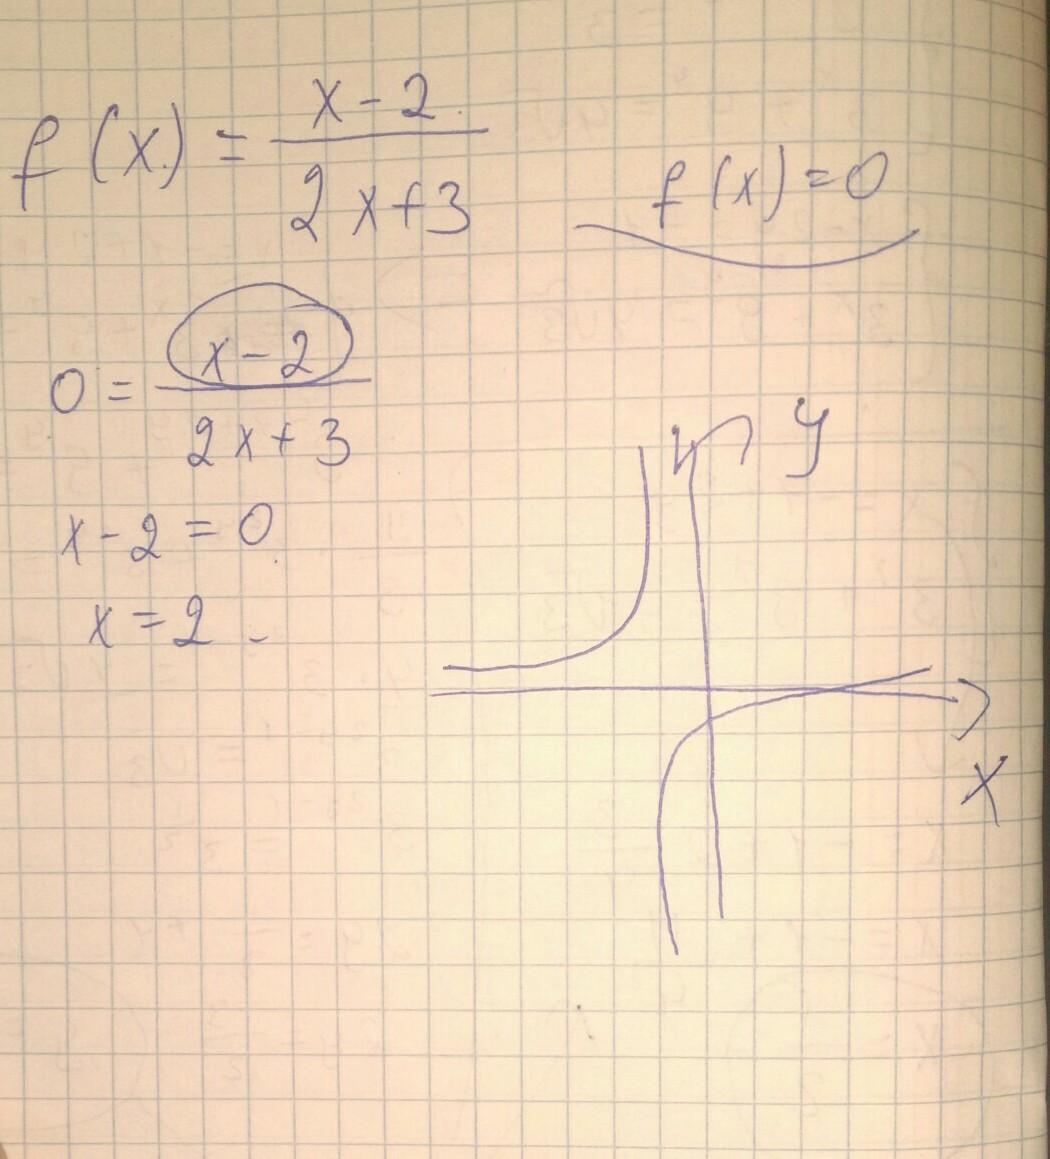 f(x) = (x-2)/(2x+3)
f(x)=0
0 = (x-2)/(2x+3)
x-2=0
x=2
y
x